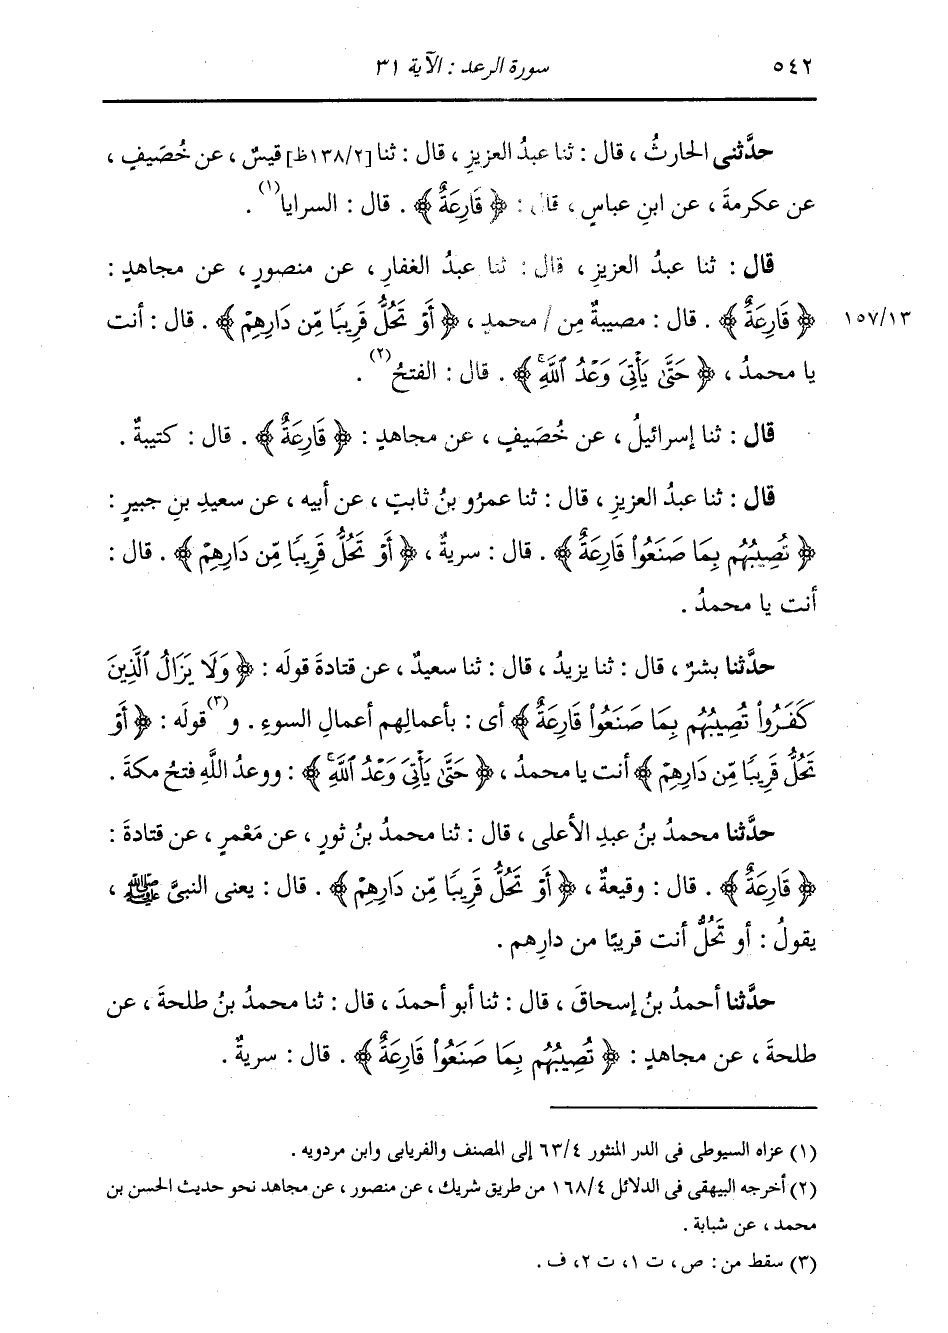 ٥٤٢ سورة الرعد : الآية ٣١
حدَّثنى الحارثُ ، قال : ثنا عبدُ العزيزِ ، قال : ثنا [١٣٨/٢ظ] قيسٌ ، عن خُصَيفٍ ،
عن عكرمةَ ، عن ابنِ عباسٍ ، قال : ﴿ قَارِعَةٌ ﴾ . قال : السرايا(١) .
قال : ثنا عبدُ العزيزِ ، قال : ثنا عبدُ الغفارِ ، عن منصورٍ ، عن مجاهدٍ :
﴿ قَارِعَةٌ ﴾ . قال : مصيبةٌ مِن / محمدٍ ، ﴿ أَوْ تَحُلُّ قَرِيبًا مِّن دَارِهِمْ ﴾ . قال : أنت ١٥٧/١٣
يا محمدُ ، ﴿ حَتَّىٰ يَأْتِىَ وَعْدُ ٱللَّهِ ﴾ . قال : الفتحُ(٢) .
قال : ثنا إسرائيلُ ، عن خُصَيفٍ ، عن مجاهدٍ : ﴿ قَارِعَةٌ ﴾ . قال : كتيبةٌ .
قال : ثنا عبدُ العزيزِ ، قال : ثنا عمرُو بنُ ثابتٍ ، عن أبيه ، عن سعيدِ بنِ جبيرٍ :
﴿ تُصِيبُهُم بِمَا صَنَعُواْ قَارِعَةٌ ﴾ . قال : سريةٌ ، ﴿ أَوْ تَحُلُّ قَرِيبًا مِّن دَارِهِمْ ﴾ . قال :
أنت يا محمدُ .
حدَّثنا بشرٌ ، قال : ثنا يزيدُ ، قال : ثنا سعيدٌ ، عن قتادةَ قولَه : ﴿ وَلَا يَزَالُ ٱلَّذِينَ
كَفَرُواْ تُصِيبُهُم بِمَا صَنَعُواْ قَارِعَةٌ ﴾ أى : بأعمالِهم أعمالِ السوءِ . و(٣)قولَه : ﴿ أَوْ
تَحُلُّ قَرِيبًا مِّن دَارِهِمْ ﴾ أنت يا محمدُ ، ﴿ حَتَّىٰ يَأْتِىَ وَعْدُ ٱللَّهِ ﴾ : ووعدُ اللَّهِ فتحُ مكةَ .
حدَّثنا محمدُ بنُ عبدِ الأعلى ، قال : ثنا محمدُ بنُ ثورٍ ، عن مَعْمرٍ ، عن قتادةَ :
﴿ قَارِعَةٌ ﴾ . قال : وقيعةٌ ، ﴿ أَوْ تَحُلُّ قَرِيبًا مِّن دَارِهِمْ ﴾ . قال : يعنى النبىَّ ﷺ ،
يقولُ : أو تَحُلُّ أنت قريبًا من دارِهم .
حدَّثنا أحمدُ بنُ إسحاقَ ، قال : ثنا أبو أحمدَ ، قال : ثنا محمدُ بنُ طلحةَ ، عن
طلحةَ ، عن مجاهدٍ : ﴿ تُصِيبُهُم بِمَا صَنَعُواْ قَارِعَةٌ ﴾ . قال : سريةٌ .
(١) عزاه السيوطى فى الدر المنثور ٦٣/٤ إلى المصنف والفريابى وابن مردويه .
(٢) أخرجه البيهقى فى الدلائل ١٦٨/٤ من طريق شريك ، عن منصور ، عن مجاهد نحو حديث الحسن بن
محمد ، عن شبابة .
(٣) سقط من : ص ، ت ١، ت ٢، ف .